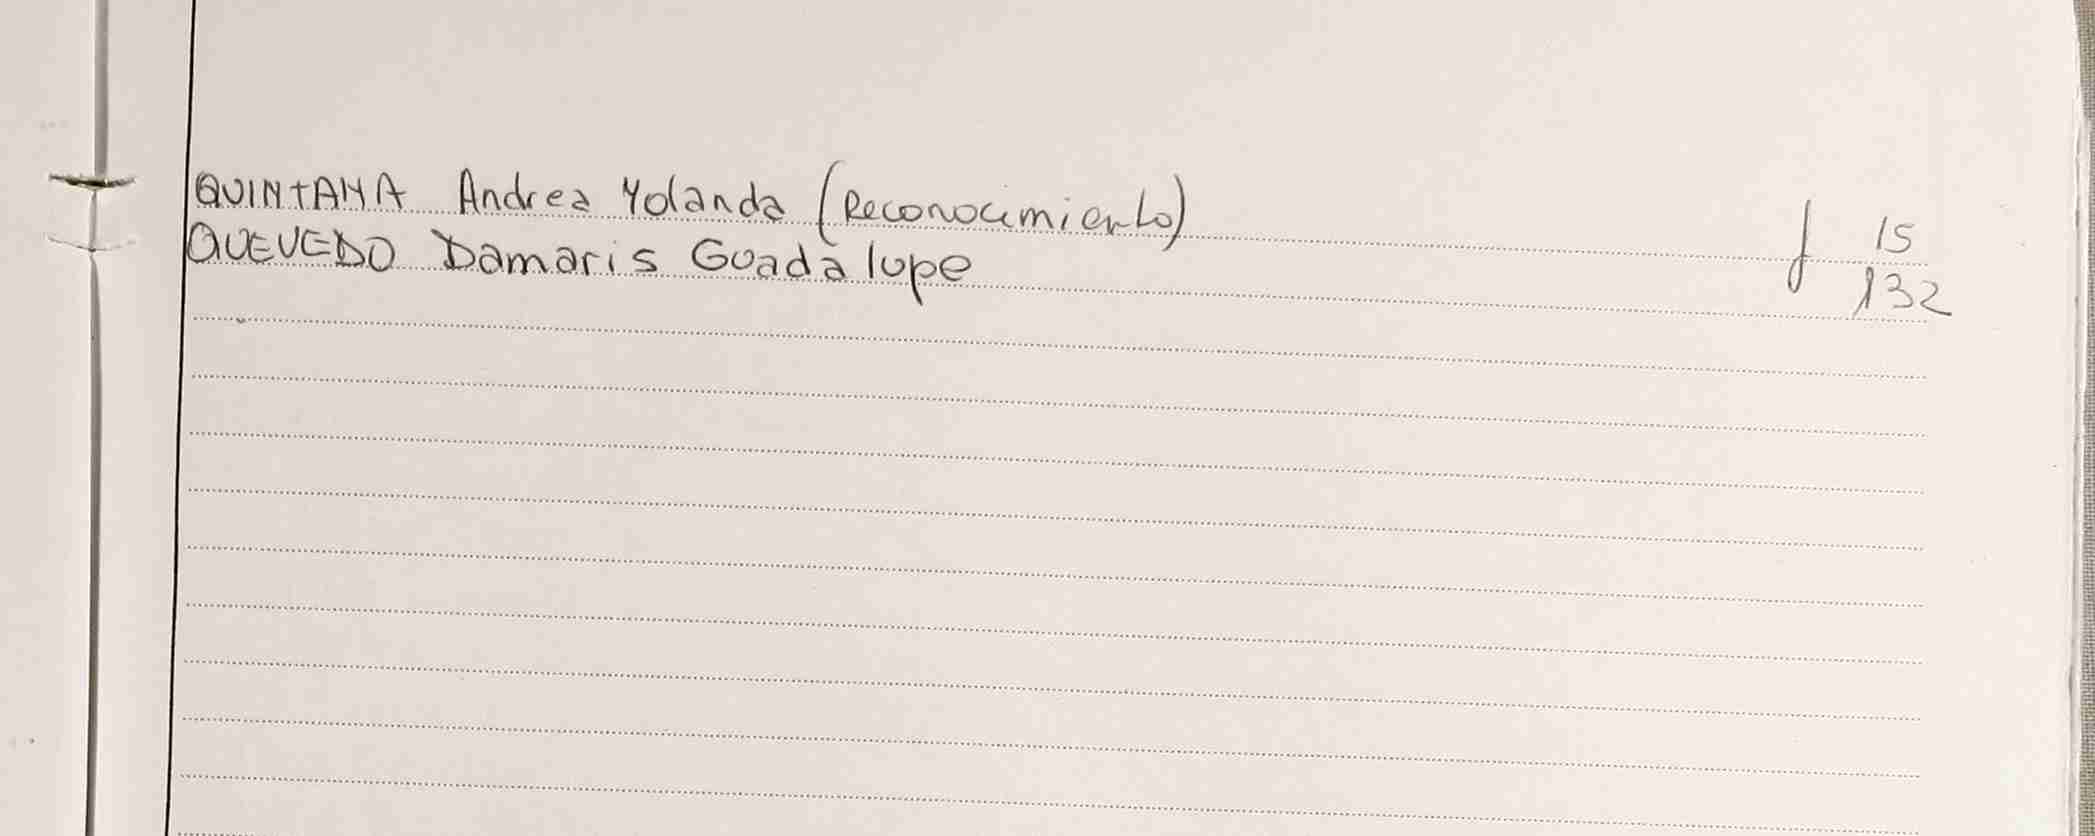 QUINTANA Andrea Yolanda (Reconocimiento) f 15
QUEVEDO Damaris Guadalupe 132